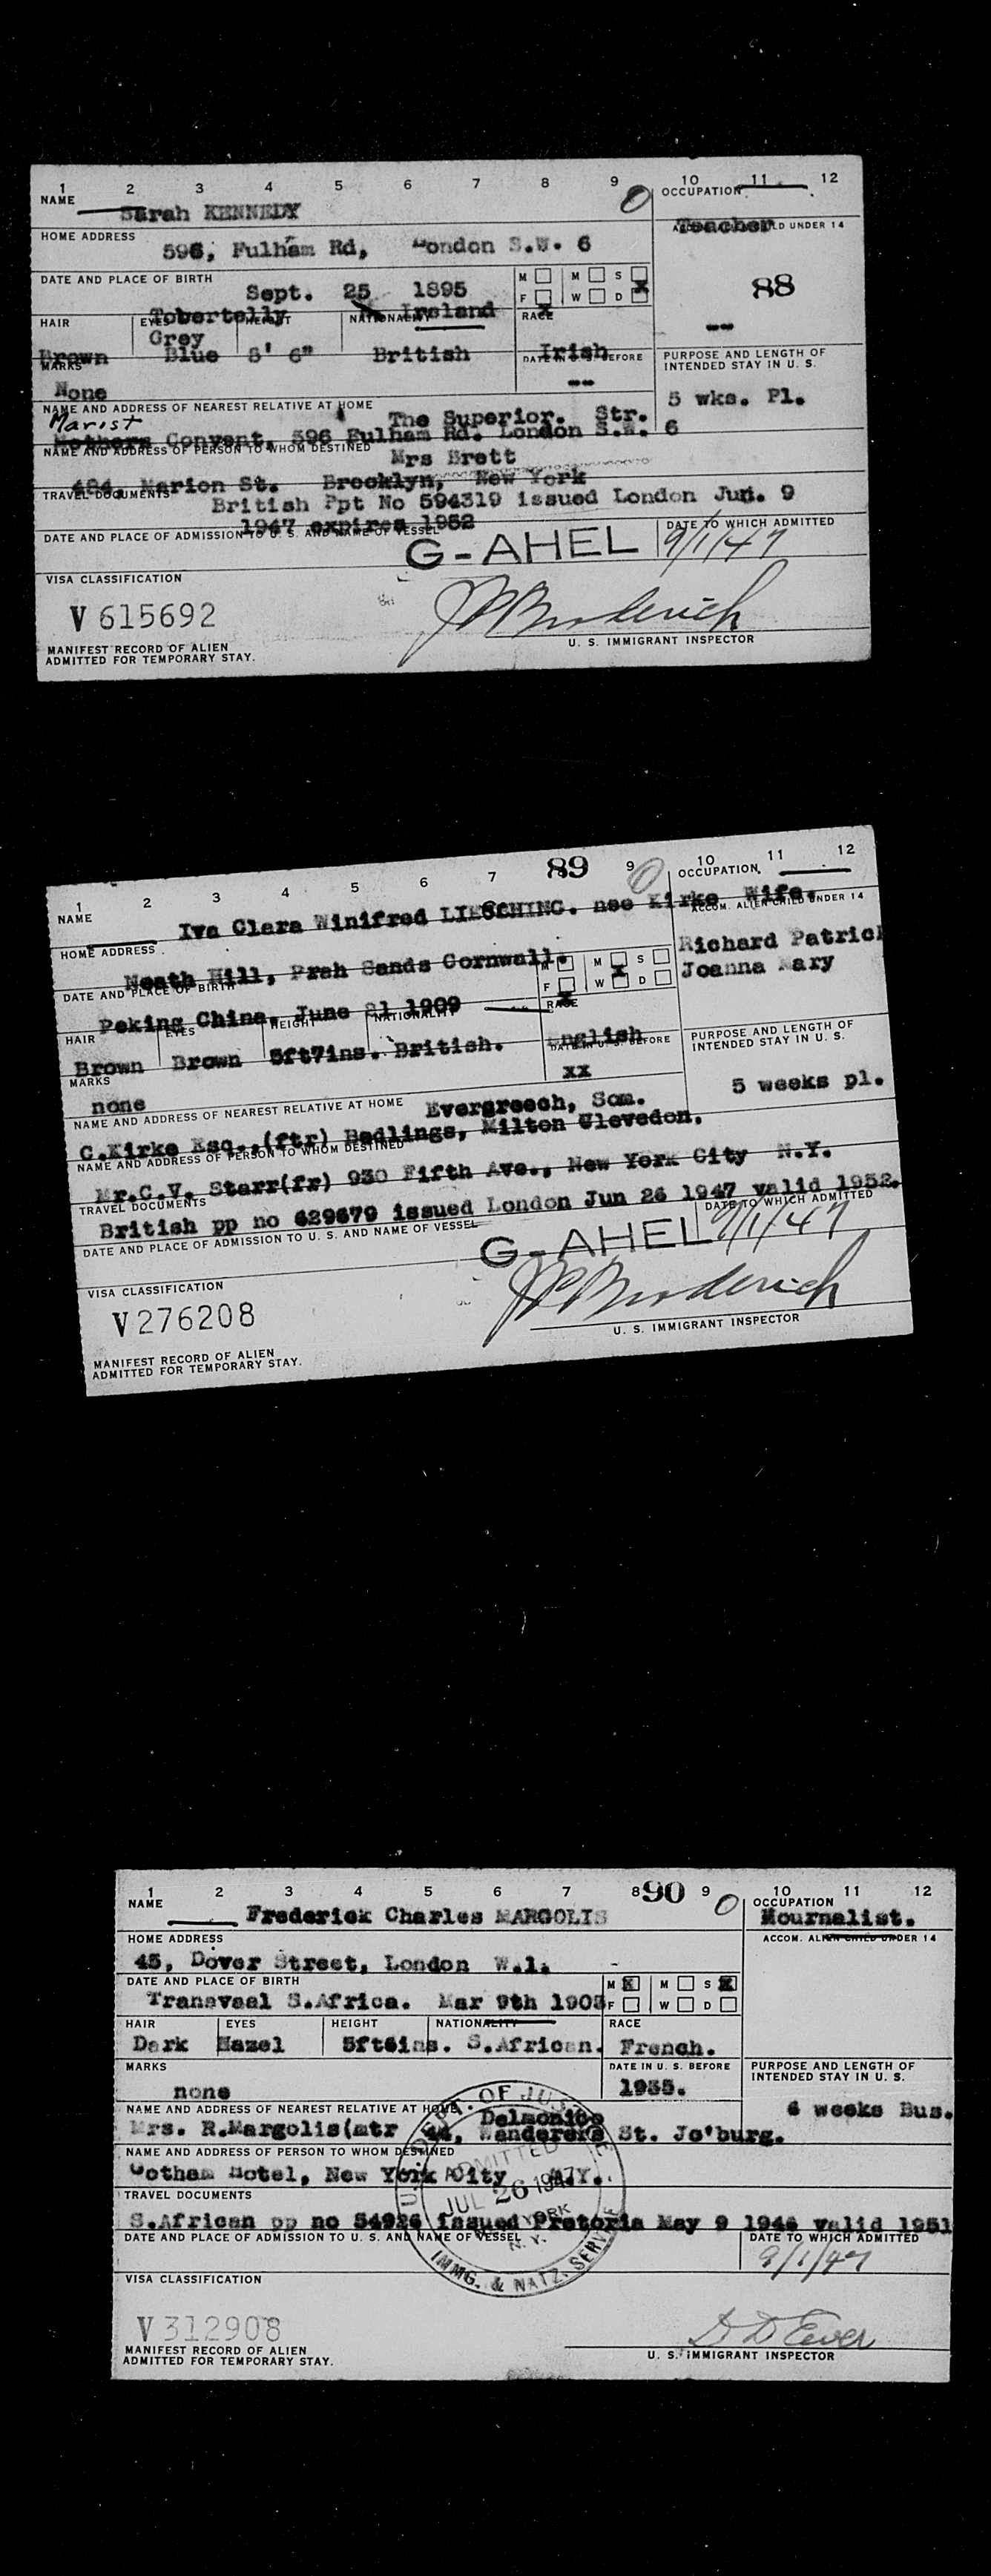 1 2 3 4 5 6 7 8 9 10 11 12
NAME
OCCUPATION
Sarah KENNEDY
Teacher
HOME ADDRESS
596, Fulham Rd, London S.W. 6
DATE AND PLACE OF BIRTH
M M S
88
Sept. 25 1895
F W D
Tobertelly Ireland
HAIR EYES HEIGHT NATIONALITY RACE
Grey
Brown Blue 5' 6" British Irish
--
MARKS
DATE IN U. S. BEFORE
PURPOSE AND LENGTH OF
INTENDED STAY IN U. S.
None
--
5 wks. Pl.
NAME AND ADDRESS OF NEAREST RELATIVE AT HOME
Marist The Superior. Str.
Mothers Convent, 596 Fulham Rd. London S.W. 6
NAME AND ADDRESS OF PERSON TO WHOM DESTINED
Mrs Brett
484, Marion St. Brooklyn, New York
TRAVEL DOCUMENTS
British Ppt No 594319 issued London Jun. 9
1947 expires 1952
DATE AND PLACE OF ADMISSION TO U. S. AND NAME OF VESSEL
DATE TO WHICH ADMITTED
G-AHEL 9/1/47
VISA CLASSIFICATION
V 615692
J P Broderick
U. S. IMMIGRANT INSPECTOR
MANIFEST RECORD OF ALIEN
ADMITTED FOR TEMPORARY STAY.
1 2 3 4 5 6 7 89 9 10 11 12
NAME
OCCUPATION
Iva Clara Winifred LIESCHING. nee Kirke Wife.
ACCOM. ALIEN CHILD UNDER 14
HOME ADDRESS
Richard Patric
Neath Hill, Prah Sands Cornwall.
Joanna Mary
DATE AND PLACE OF BIRTH
M M S
F W D
Peking China, June 21 1909
HAIR EYES HEIGHT NATIONALITY RACE
Brown Brown 5ft7ins. British. English
MARKS
DATE IN U. S. BEFORE
PURPOSE AND LENGTH OF
INTENDED STAY IN U. S.
none
xx
5 weeks pl.
NAME AND ADDRESS OF NEAREST RELATIVE AT HOME
Evergreech, Som.
C.Kirke Esq. (ftr) Hedlings, Milton Clevedon,
NAME AND ADDRESS OF PERSON TO WHOM DESTINED
Mr.C.V. Starr(fr) 930 Fifth Ave., New York City N.Y.
TRAVEL DOCUMENTS
British pp no 629679 issued London Jun 26 1947 valid 1952.
DATE AND PLACE OF ADMISSION TO U. S. AND NAME OF VESSEL
DATE TO WHICH ADMITTED
G-AHEL 9/1/47
VISA CLASSIFICATION
V 276208
J P Broderick
U. S. IMMIGRANT INSPECTOR
MANIFEST RECORD OF ALIEN
ADMITTED FOR TEMPORARY STAY.
1 2 3 4 5 6 7 8 90 9 10 11 12
NAME
OCCUPATION
Frederick Charles MARGOLIS
Mournalist.
HOME ADDRESS
ACCOM. ALIEN CHILD UNDER 14
45, Dover Street, London W.1.
DATE AND PLACE OF BIRTH
M M S
Transvaal S.Africa. Mar 9th 1903
F W D
HAIR EYES HEIGHT NATIONALITY RACE
Dark Hazel 5ft6ins. S.African. French.
MARKS
DATE IN U. S. BEFORE
PURPOSE AND LENGTH OF
INTENDED STAY IN U. S.
none
1935.
NAME AND ADDRESS OF NEAREST RELATIVE AT HOME
6 weeks Bus.
Delmonico
Mrs. R.Margolis(mtr 44, Wanderers St. Jo'burg.
NAME AND ADDRESS OF PERSON TO WHOM DESTINED
Gotham Hotel, New York City N.Y.
TRAVEL DOCUMENTS
S.African pp no 54926 issued Pretoria May 9 1946 valid 1951
DATE AND PLACE OF ADMISSION TO U. S. AND NAME OF VESSEL
DATE TO WHICH ADMITTED
9/1/47
U. S. DEPT. OF JUSTICE
ADMITTED
JUL 26 1947
NEW YORK
N. Y.
IMMG. & NATZ. SERVICE
VISA CLASSIFICATION
V 312908
D D Ewer
U. S. IMMIGRANT INSPECTOR
MANIFEST RECORD OF ALIEN
ADMITTED FOR TEMPORARY STAY.